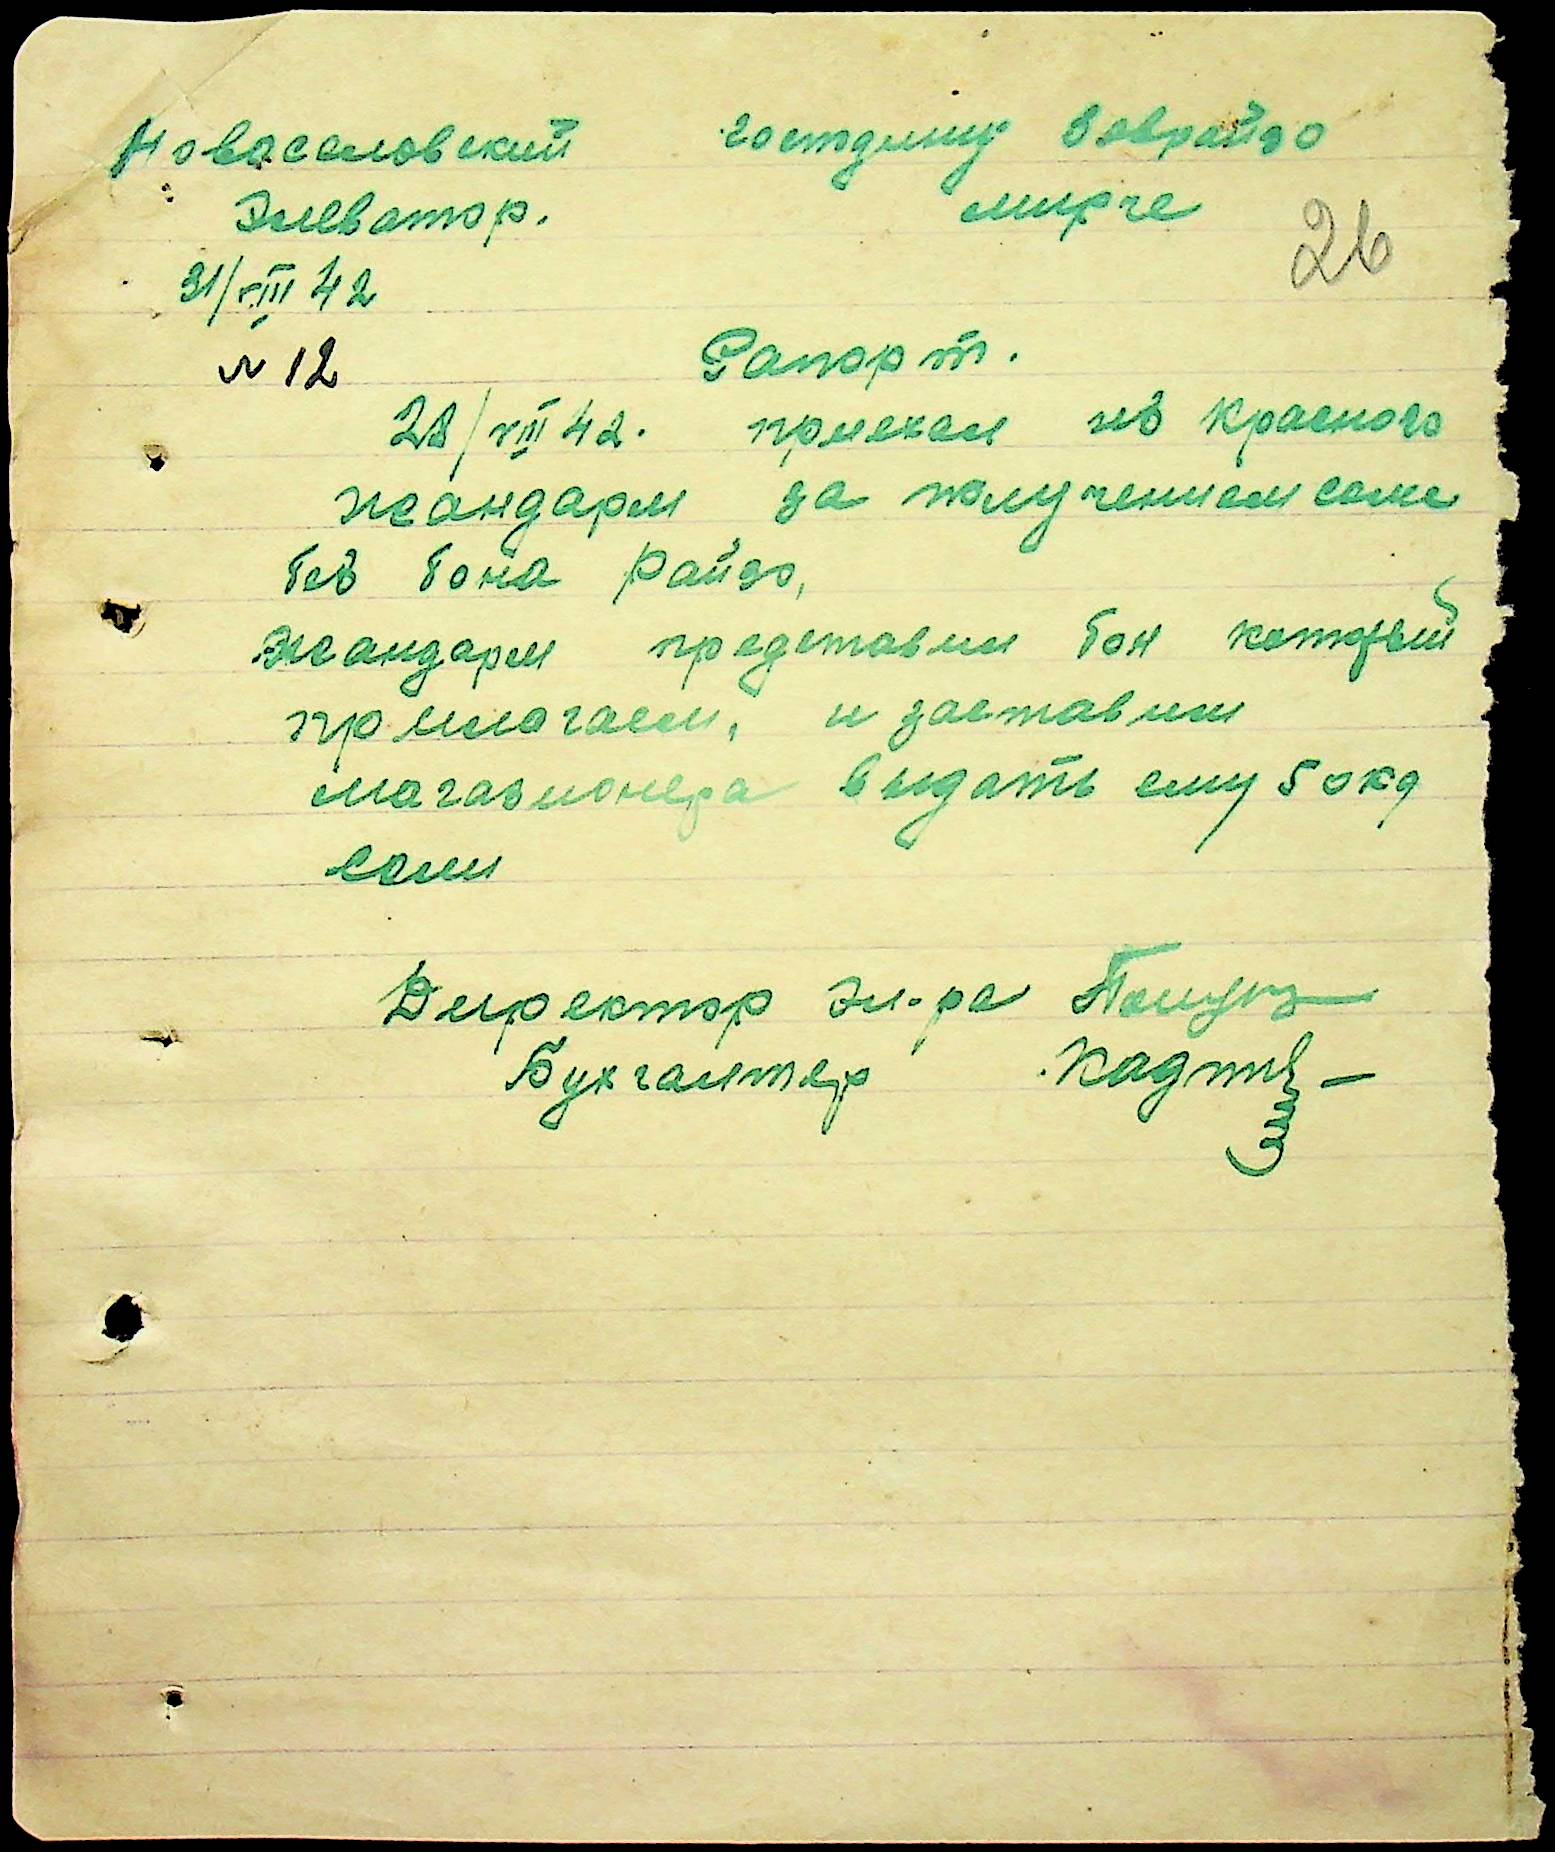 Новоселовский
Элеватор.
31/VIII 42
N 12
господину Заврайзо
мирче
26
Рапорт.
28/VIII 42. приехал из Красного
жандарм за получением соли
без бона Райзо,
жандарм представил бон который
прилогаем, и заставил
магазионера выдать ему 50 кг
соли
Директор эл-ра
Бухгалтер